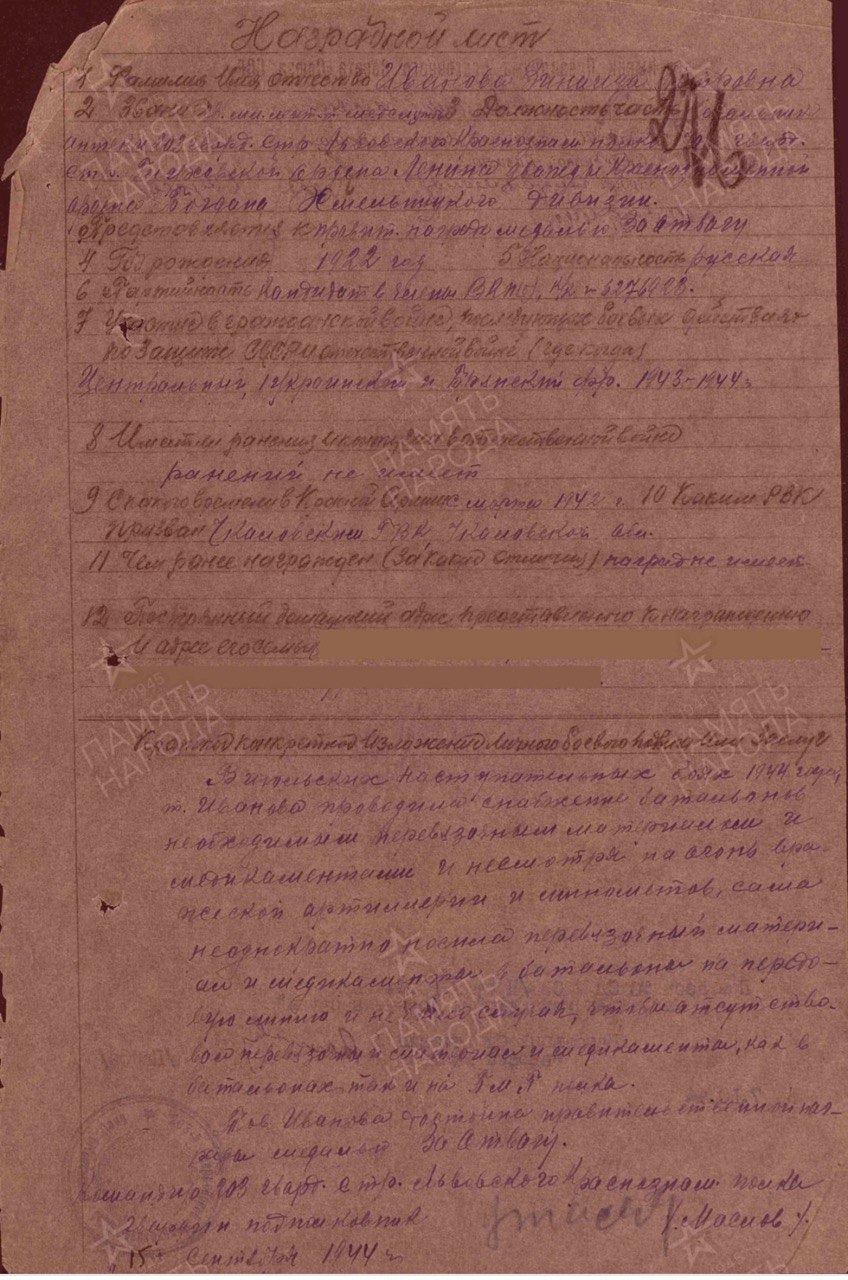 Наградной лист
1 Фамилия Имя отчество Иванова Зинаида
2 Звание гв. мл. лейт-т медслужбы 3 Должность часть Начальник
аптеки 203 гвард. стр. Львовского Краснознам полка гвард.
стр. ордена Ленина дважды Краснознаменной
ордена Богдана Хмельницкого дивизии.
Представляется к правит. награде медалью За отвагу
4 Год рождения 1922 год 5 Национальность русская
6 Партийность Кандидат в члены ВКП(б)
7 Участие в гражданской войне, последующих боевых действиях
по защите СССР и отечественной войне (где когда)
Центральный, 1 Украинский и Брянский фр. 1943-1944 г.
8 Имеет ли ранения и контузии в отечественной войне
ранений не имеет
9 С какого времени в Красной Армии с марта 1942 г. 10 Каким РВК
призван Чкаловским ГВК, Чкаловской обл.
11 Чем ранее награжден (за какие отличия) наград не имеет
12 Постоянный домашний адрес представляемого к награждению
и адрес его семьи
Краткое конкретное изложение личного боевого подвига или заслуг
В июльских наступательных боях 1944 года,
т. Иванова проводила снабжение батальонов
необходимым перевязочным материалом и
медикаментами и несмотря на огонь вра-
жеской артиллерии и минометов, сама
неоднократно носила перевязочный матери-
ал и медикаменты в батальоны на передо-
вую линию и не было случая, чтобы отсутство-
вал перевязочный материал и медикаменты, как в
батальонах так и на ПМП полка.
Тов Иванова достойна правительственной наг-
рады медалью За Отвагу.
Командир 203 гвард. стр. Львовского Краснознам. полка
Гвардии подполковник /Маслов/.
"15" Сентября 1944 г.
ПАМЯТЬ
НАРОДА
ПАМЯТЬ
НАРОДА
ПАМЯТЬ
НАРОДА
ПАМЯТЬ
НАРОДА